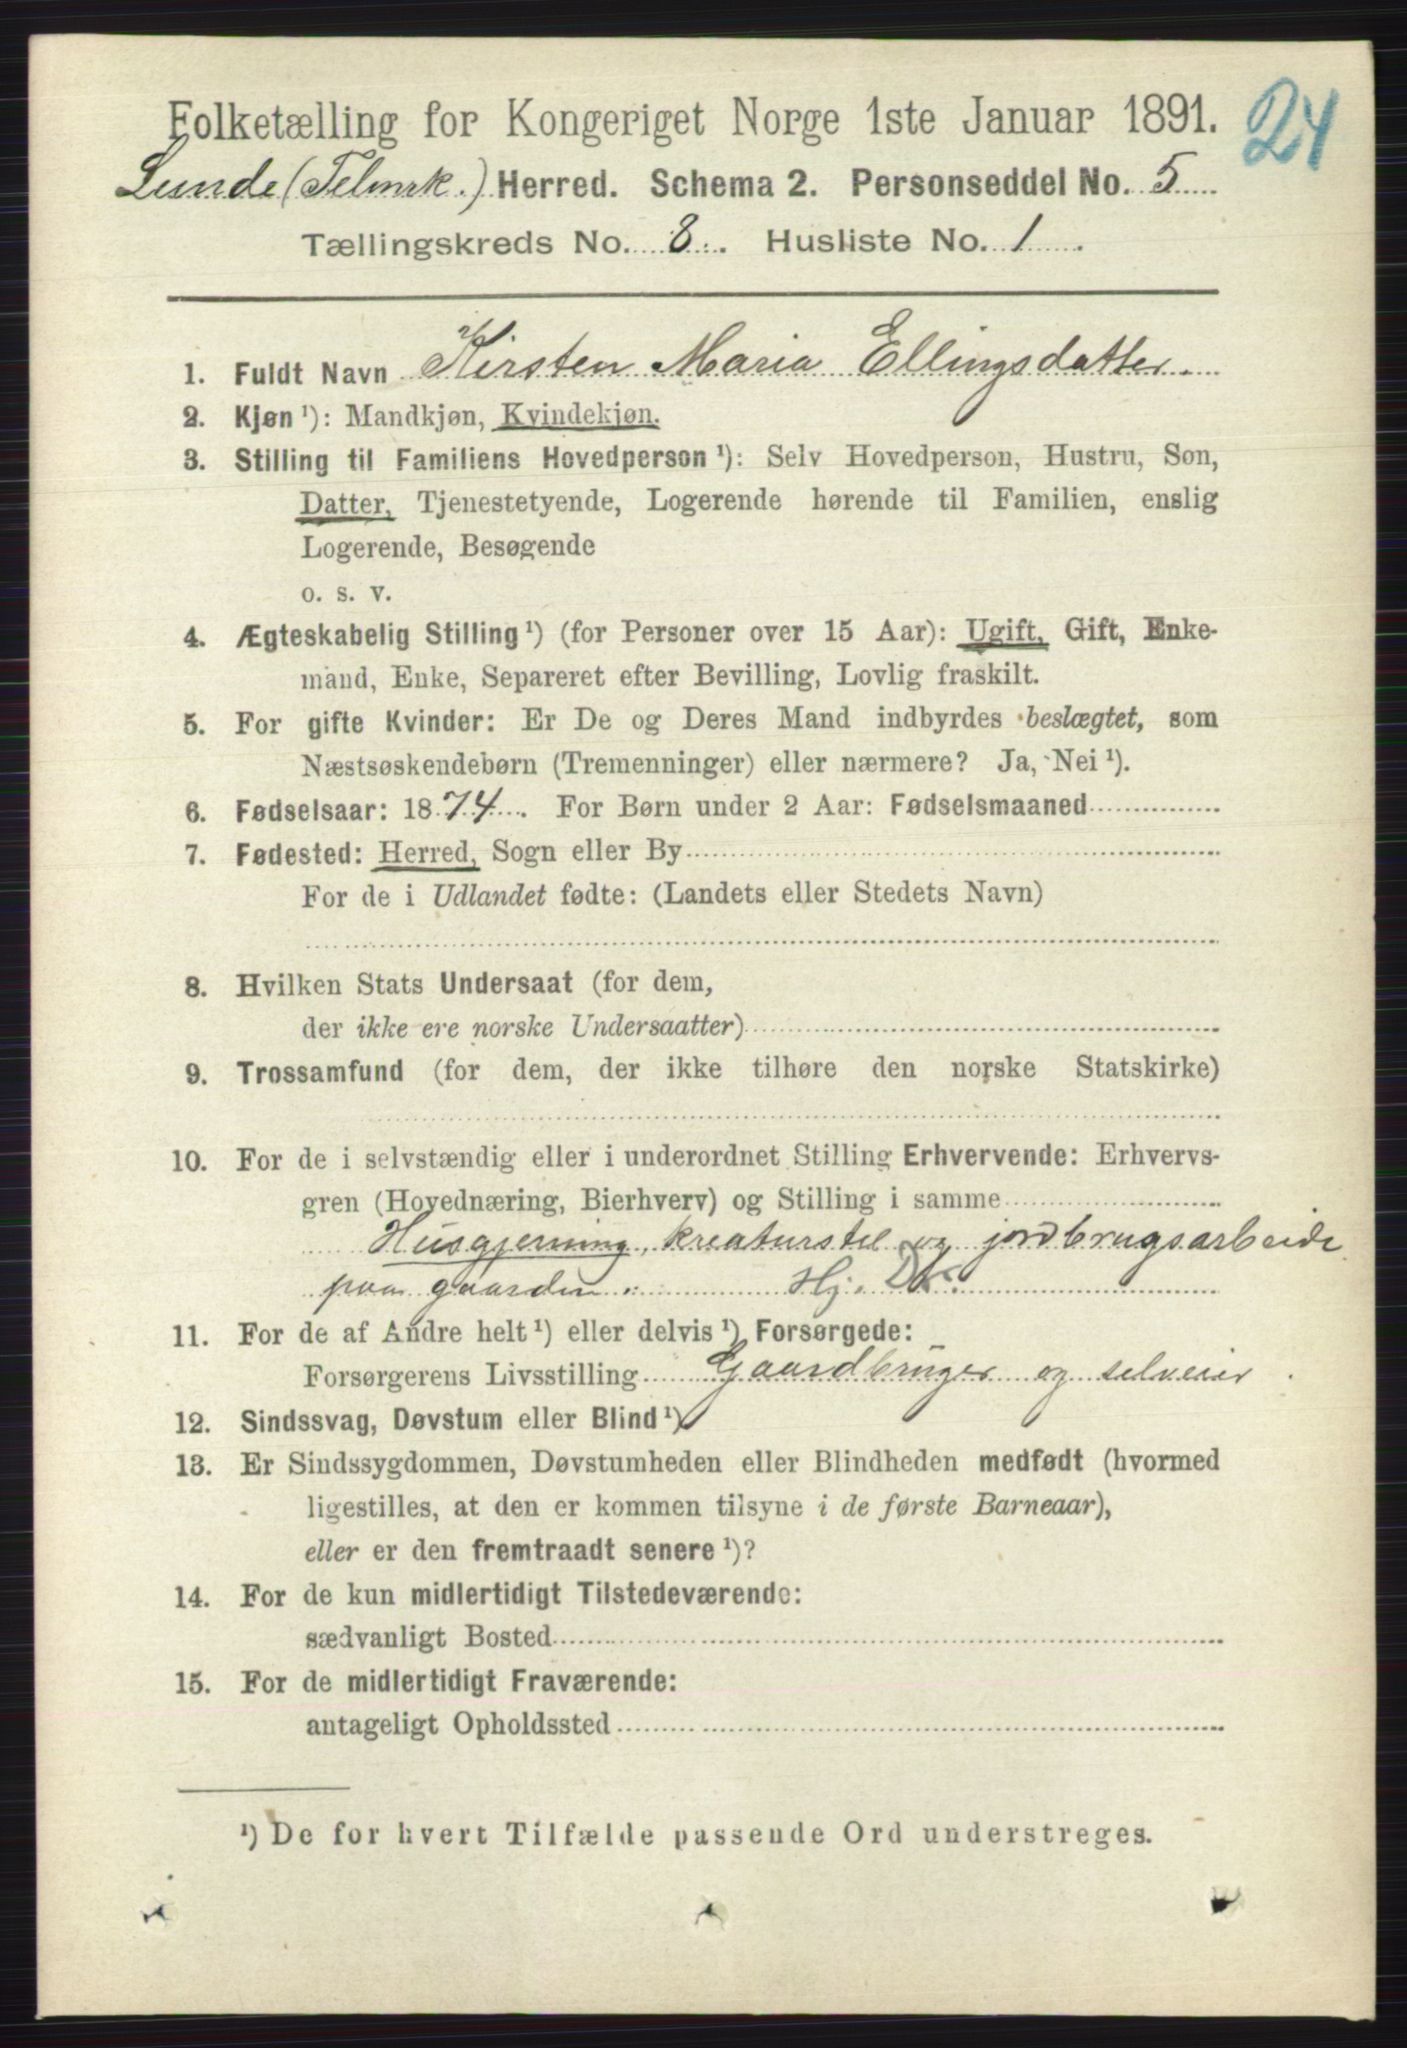 Folketælling for Kongeriget Norge 1ste Januar 1891.
24
Lunde (Telmrk.) Herred. Schema 2. Personseddel No. 5
Tællingskreds No. 8. Husliste No. 1.
1. Fuldt Navn Kirsten Maria Ellingsdatter.
2. Kjøn ¹): Mandkjøn, Kvindekjøn.
3. Stilling til Familiens Hovedperson ¹): Selv Hovedperson, Hustru, Søn,
Datter, Tjenestetyende, Logerende hørende til Familien, enslig
Logerende, Besøgende
o. s. v.
4. Ægteskabelig Stilling ¹) (for Personer over 15 Aar): Ugift, Gift, Enke-
mand, Enke, Separeret efter Bevilling, Lovlig fraskilt.
5. For gifte Kvinder: Er De og Deres Mand indbyrdes beslægtet, som
Næstsøskendebørn (Tremenninger) eller nærmere? Ja, Nei ¹).
6. Fødselsaar: 1874. For Børn under 2 Aar: Fødselsmaaned
7. Fødested: Herred, Sogn eller By
For de i Udlandet fødte: (Landets eller Stedets Navn)
8. Hvilken Stats Undersaat (for dem,
der ikke ere norske Undersaatter)
9. Trossamfund (for dem, der ikke tilhøre den norske Statskirke)
10. For de i selvstændig eller i underordnet Stilling Erhvervende: Erhvervs-
gren (Hovednæring, Bierhverv) og Stilling i samme
Husgjerning, kreaturstel og jordbrugsarbeide
paa gaarden. Hj. Dk.
11. For de af Andre helt ¹) eller delvis ¹) Forsørgede:
Forsørgerens Livsstilling Gaardbruger og selveier.
12. Sindssvag, Døvstum eller Blind ¹)
13. Er Sindssygdommen, Døvstumheden eller Blindheden medfødt (hvormed
ligestilles, at den er kommen tilsyne i de første Barneaar),
eller er den fremtraadt senere ¹)?
14. For de kun midlertidigt Tilstedeværende:
sædvanligt Bosted
15. For de midlertidigt Fraværende:
antageligt Opholdssted
¹) De for hvert Tilfælde passende Ord understreges.